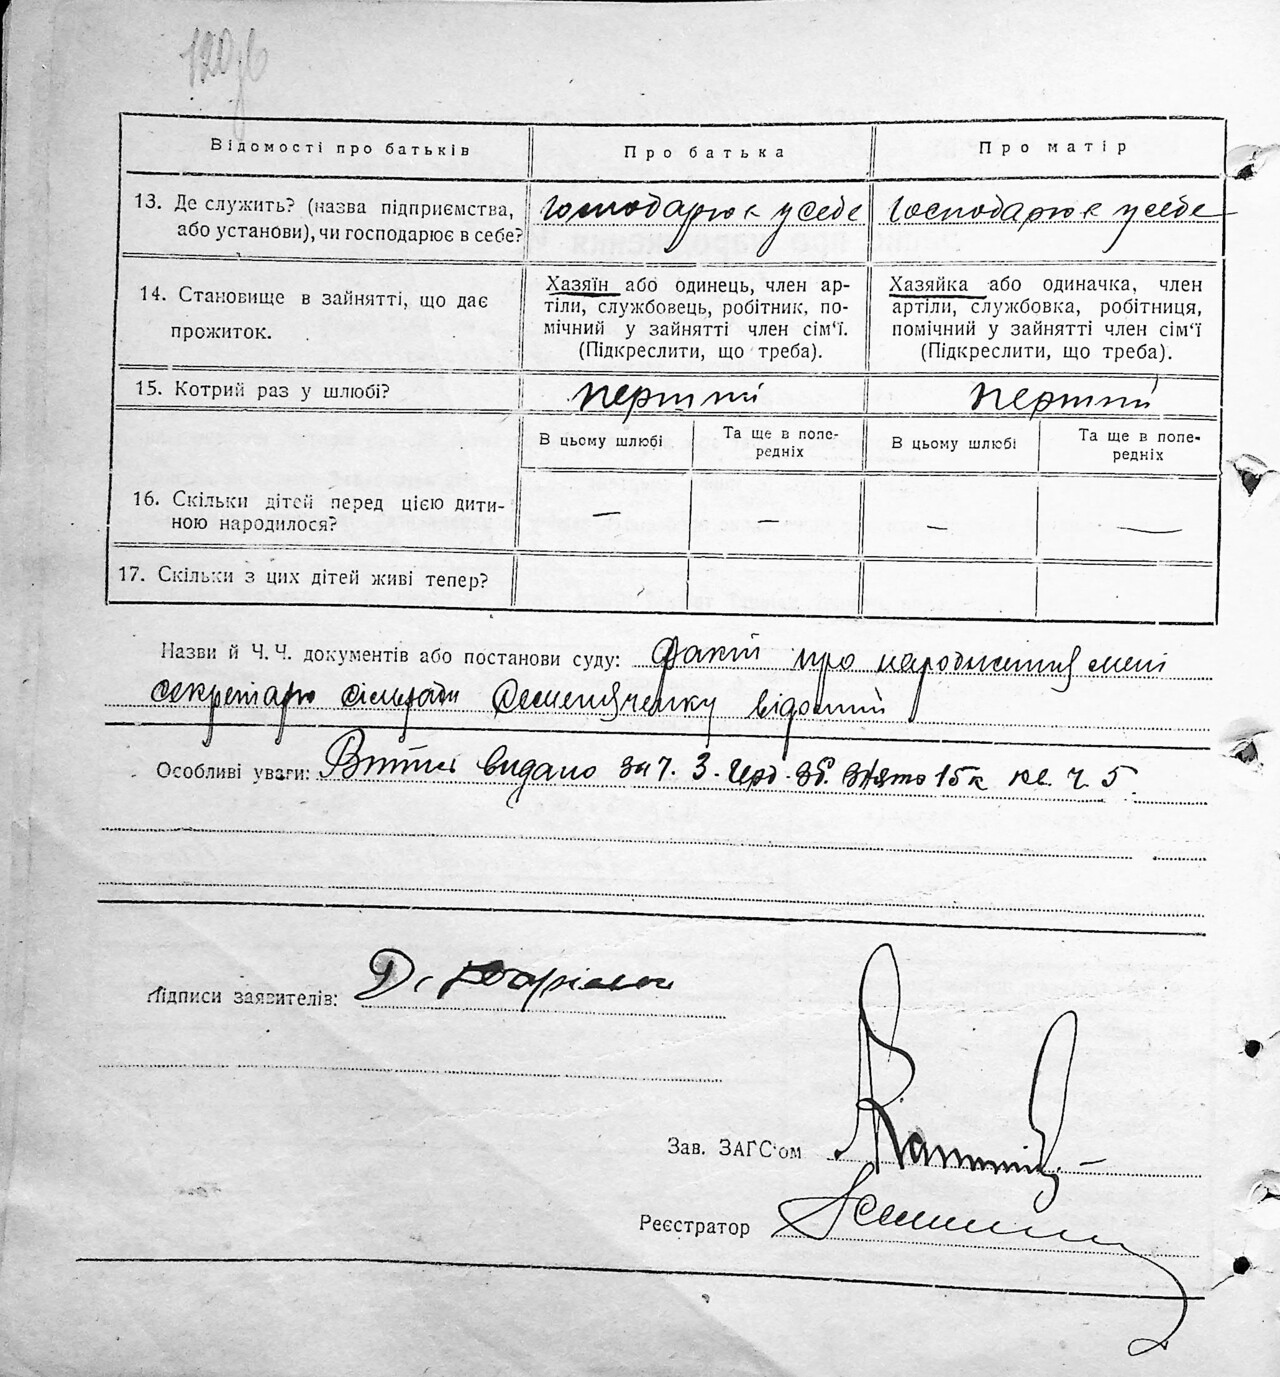 Відомості про батьків
Про батька
Про матір
13. Де служить? (назва підприємства,
або установи), чи господарює в себе?
господарює у себе
господарює у себе
14. Становище в зайнятті, що дає
прожиток.
Хазяїн або одинець, член ар-
тіли, службовець, робітник, по-
мічний у зайнятті член сім'ї.
(Підкреслити, що треба).
Хазяйка або одиначка, член
артіли, службовка, робітниця,
помічний у зайнятті член сім'ї
(Підкреслити, що треба).
15. Котрий раз у шлюбі?
перший
перший
В цьому шлюбі
Та ще в попе-
редніх
В цьому шлюбі
Та ще в попе-
редніх
16. Скільки дітей перед цією дити-
ною народилося?
—
—
—
—
17. Скільки з цих дітей живі тепер?
Назви й Ч. Ч. документів або постанови суду: Факт про народження мені
секретарю сільради відомий
Особливі уваги: Витяг видано за ч. 3. Герб. зб. знято 15 к кв. ч. 5.
Підписи заявителів:
Зав. ЗАГС'ом
Реєстратор